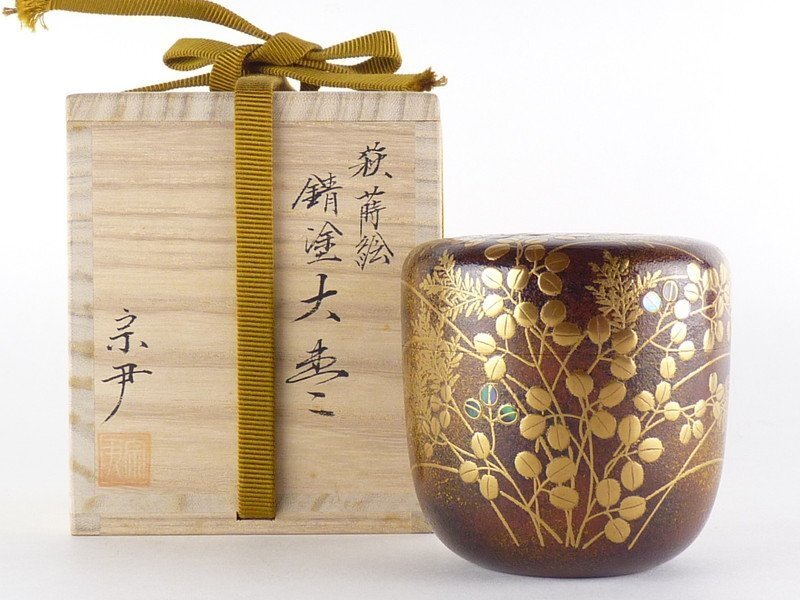 萩蒔絵
錆塗大棗
宗尹